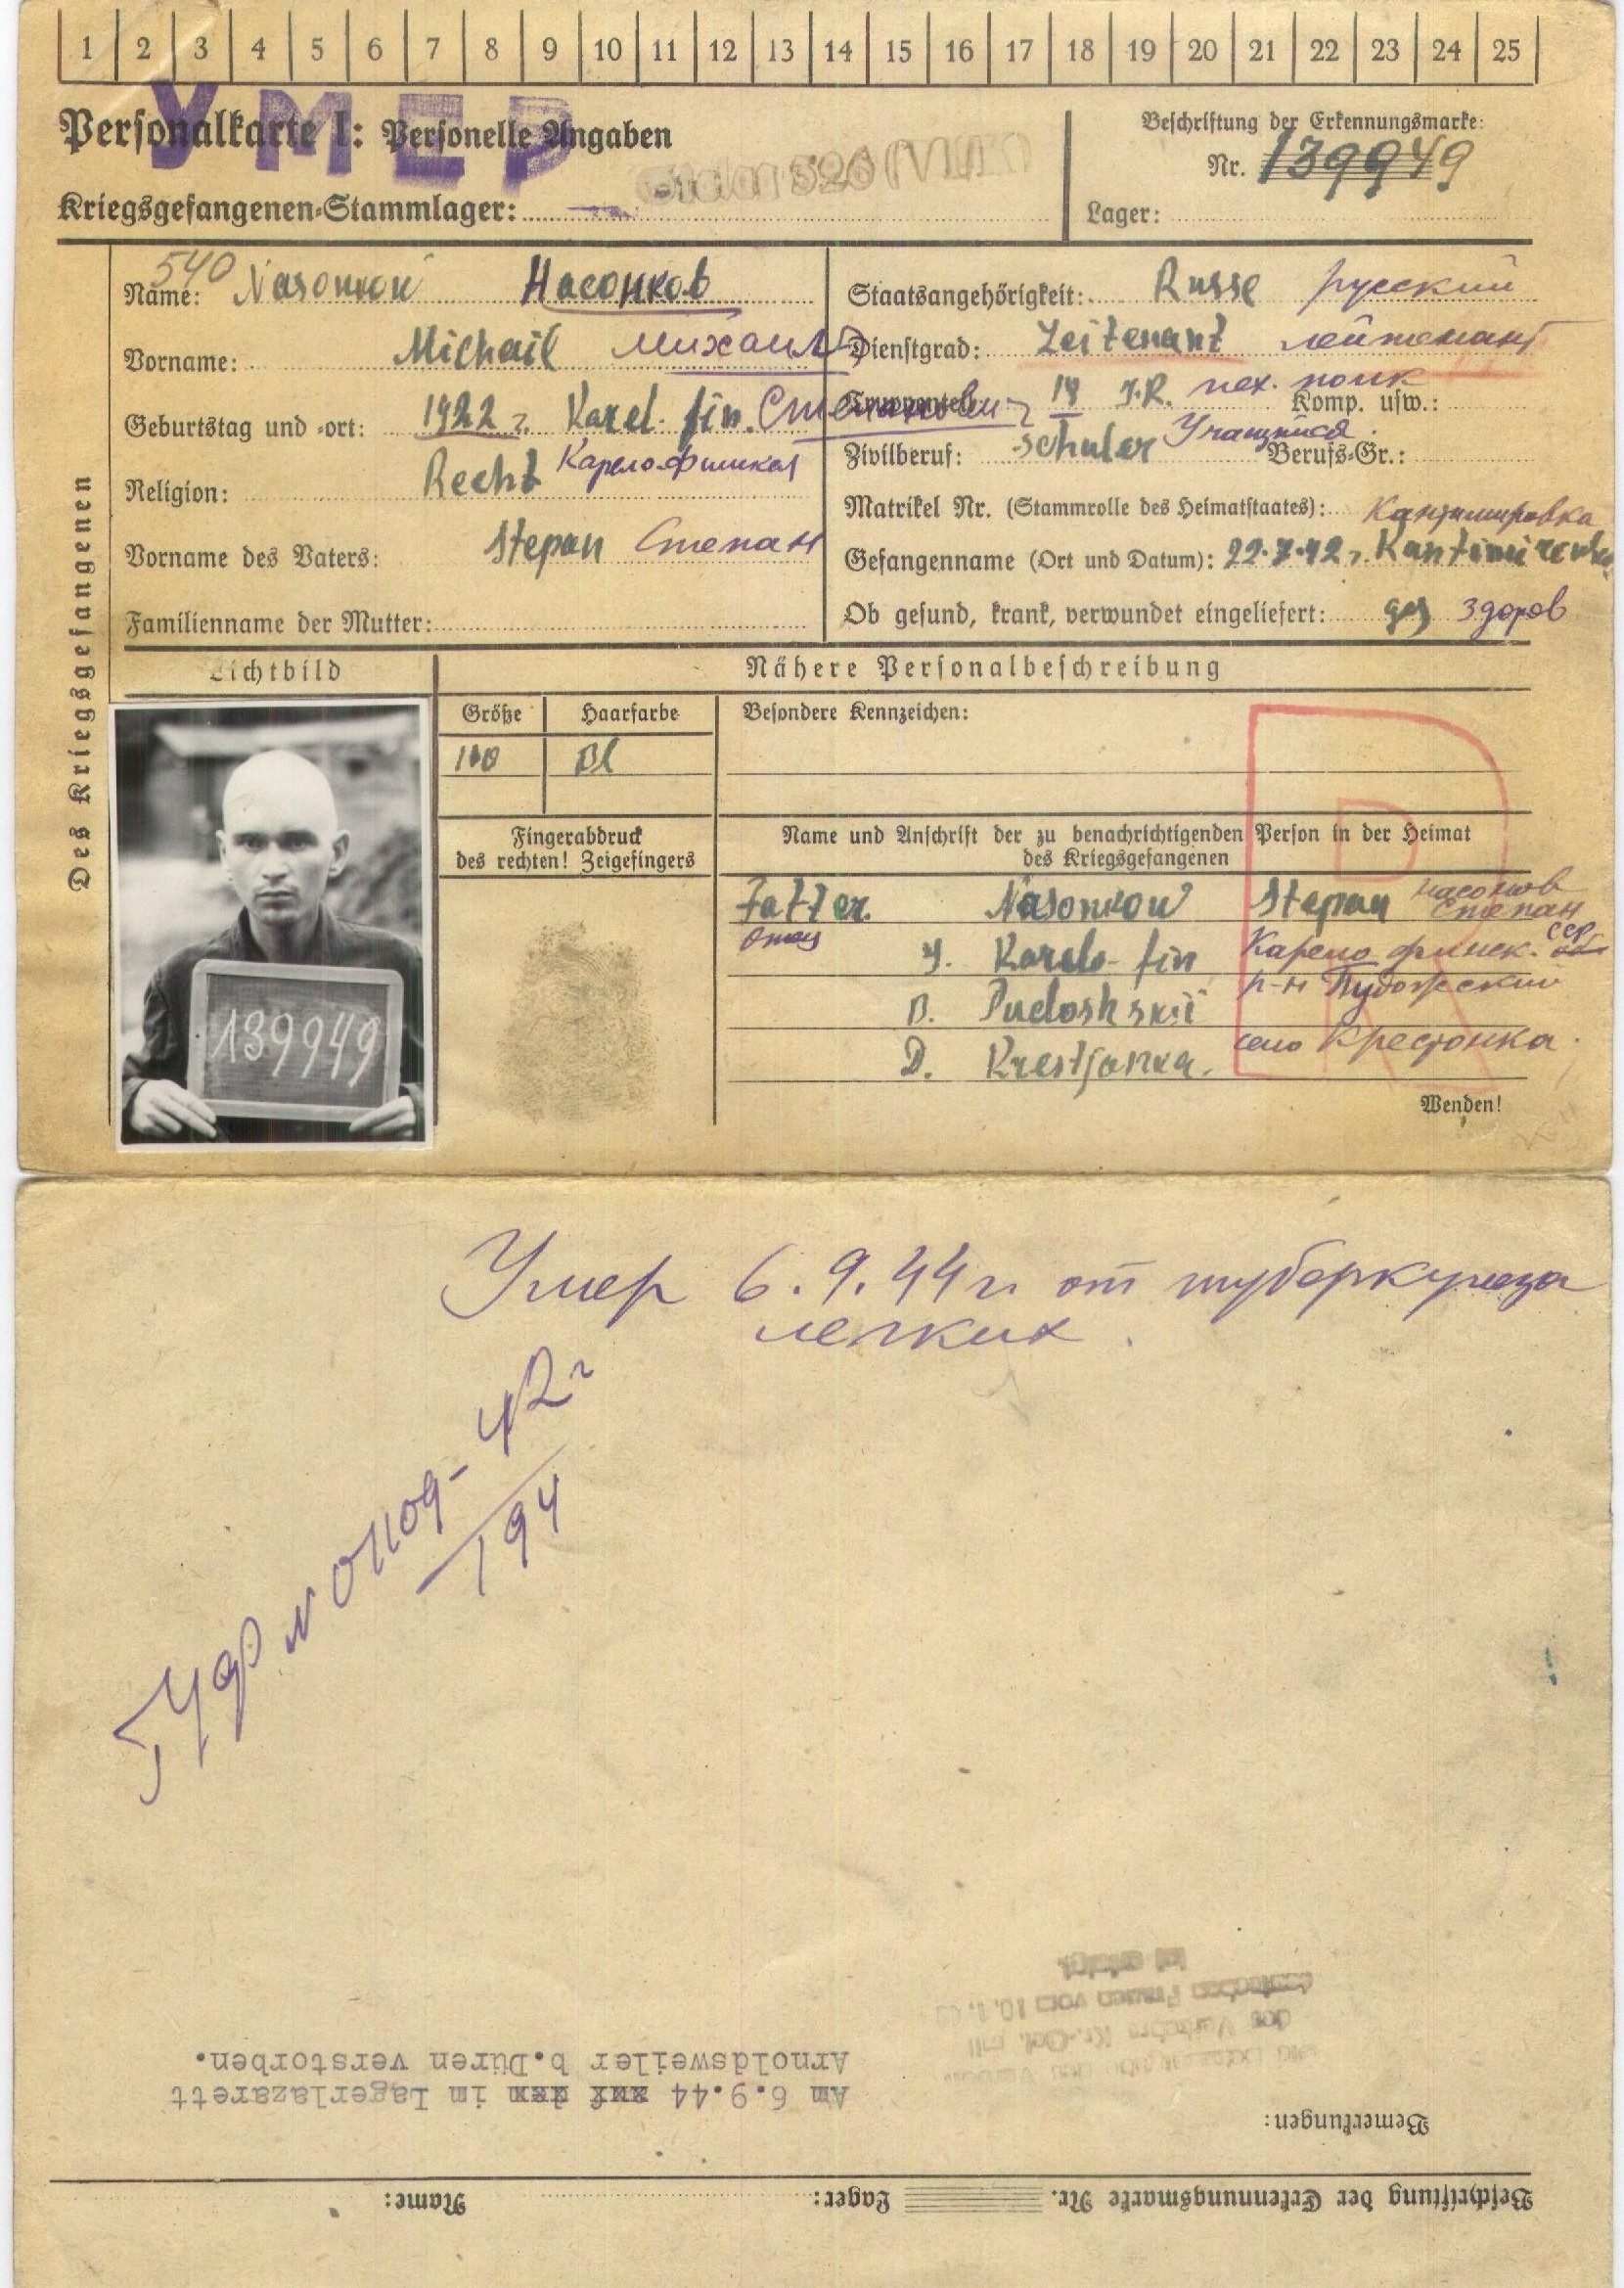 1 2 3 4 5 6 7 8 9 10 11 12 13 14 15 16 17 18 19 20 21 22 23 24 25
УМЕР
Personalkarte I: Personelle Angaben
Kriegsgefangenen-Stammlager: Stalag 326 (VI K)
Beschriftung der Erkennungsmarke:
Nr. 139949
Lager:
Des Kriegsgefangenen
540
Name: Nasonkow Насонков
Vorname: Michail Михаил
Geburtstag und -ort: 1922 г. Karel. fin. Степанович
Religion: Recht Карелофинская
Vorname des Vaters: Stepan Степан
Familienname der Mutter:
Staatsangehörigkeit: Russe русский
Dienstgrad: Leitenant лейтенант
Truppenteil: 14 J.R. пех. полк Komp. usw.:
Zivilberuf: Schuler Учащийся Berufs-Gr.:
Matrikel Nr. (Stammrolle des Heimatstaates): Кантимировка
Gefangenname (Ort und Datum): 22.7.42 г. Kantimirowka
Ob gesund, krank, verwundet eingeliefert: ges здоров
Lichtbild
Nähere Personalbeschreibung
Größe Haarfarbe Besondere Kennzeichen:
Bl
Fingerabdruck
des rechten! Zeigefingers
Name und Anschrift der zu benachrichtigenden Person in der Heimat
des Kriegsgefangenen
Fatter Nasonkow Stepan Насонков Степан
Отец
Karelo-fin Карело финск. ССР
Pudoshskii р-н Пудожский
D. Krestjanka. село Крестянка.
Wenden!
139949
Умер 6.9.44 г. от туберкулеза
легких.
42 г
194
Am 6.9.44 im Lagerlazarett
Arnoldsweiler b.Düren verstorben.
Bemerkungen:
Beschriftung der Erkennungsmarke Nr. Lager: Name: